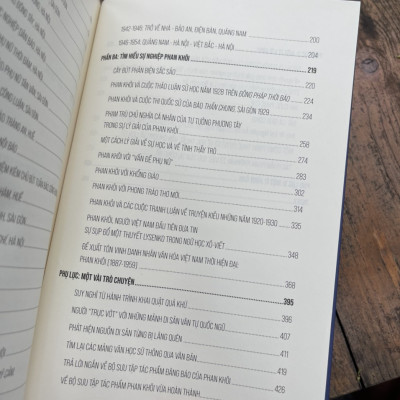 1942-1946: TRỞ VỀ NHÀ - BẢO AN, ĐIỆN BÀN, QUẢNG NAM 200
1946-1954: QUẢNG NAM - HÀ NỘI - VIỆT BẮC - HÀ NỘI 204
PHẦN BA: TÌM HIỂU SỰ NGHIỆP PHAN KHÔI 219
CÂY BÚT PHẢN BIỆN SẮC SẢO 220
PHAN KHÔI VÀ CUỘC THẢO LUẬN SỬ HỌC NĂM 1928 TRÊN ĐÔNG PHÁP THỜI BÁO 224
PHAN KHÔI VÀ CUỘC THI QUỐC SỬ CỦA BÁO THẦN CHUNG SÀI GÒN 1929
PHẠM TRÙ CHỦ NGHĨA CÁ NHÂN CỦA TƯ TƯỞNG PHƯƠNG TÂY
TRONG SỰ LÝ GIẢI CỦA PHAN KHÔI 258
MỘT CÁCH LÝ GIẢI VỀ SỰ HỌC VÀ VỀ TÌNH THẦY TRÒ 274
PHAN KHÔI VỚI "VẤN ĐỀ PHỤ NỮ" 283
PHAN KHÔI VỚI KHỔNG GIÁO 302
PHAN KHÔI VỚI PHONG TRÀO THƠ MỚI 314
PHAN KHÔI VÀ CÁC CUỘC TRANH LUẬN VỀ TRUYỆN KIỀU NHỮNG NĂM 1920-1930 335
PHAN KHÔI, NGƯỜI VIỆT NAM ĐẦU TIÊN ĐƯA TIN
SỰ SỤP ĐỔ MỘT THUYẾT LYSENKO TRONG NGÔN NGỮ HỌC XÔ-VIẾT 348
ĐỀ XUẤT TÔN VINH DANH NHÂN VĂN HÓA VIỆT NAM THỜI HIỆN ĐẠI:
PHAN KHÔI (1887-1959) 368
PHỤ LỤC: MỘT VÀI TRÒ CHUYỆN 395
SUY NGHĨ TỪ HÀNH TRÌNH KHAI QUẬT QUÁ KHỨ 396
NGƯỜI "TRỤC VỚT" VỚI NHỮNG MẢNH DI SẢN VĂN TỰ QUỐC NGỮ 407
PHÁT HIỆN NGUỒN DI SẢN TỪNG BỊ LÃNG QUÊN 411
TÌM LẠI CÁC MẢNG VĂN HỌC SỬ THÔNG QUA VĂN BẢN 419
TRẢ LỜI NGẮN VỀ BỘ SƯU TẬP TÁC PHẨM ĐĂNG BÁO CỦA PHAN KHÔI 426
VỀ BỘ SƯU TẬP TÁC PHẨM PHAN KHÔI VỪA HOÀN THÀNH